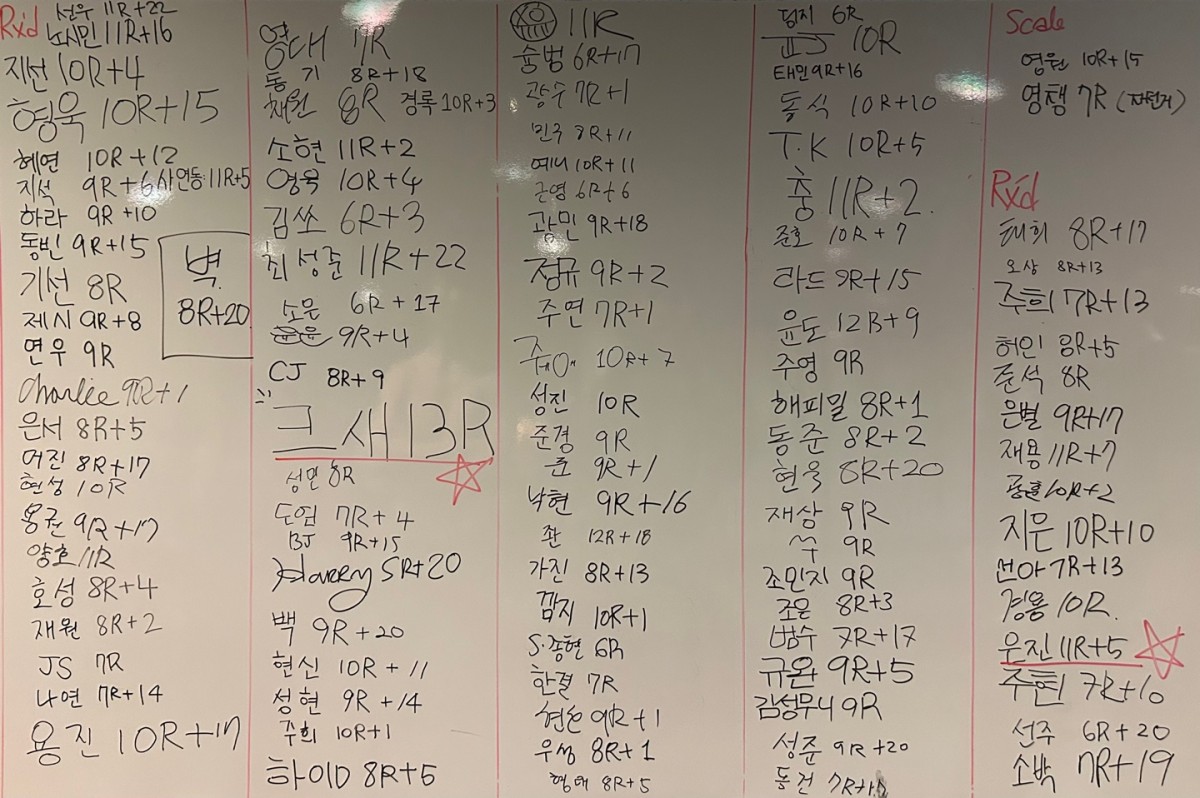 Rxd
선우 11R+22
노시민 11R+16
지선 10R+4
형욱 10R+15
혜연 10R+12
지석 9R+6
사연동:11R+5
하라 9R+10
동빈 9R+15
벽
8R+20
기선 8R
제시 9R+8
연우 9R
Charlie 9R+1
은서 8R+5
어진 8R+17
현성 10R
용권 9R+17
양호 11R
호성 8R+4
재원 8R+2
JS 7R
나연 7R+14
용진 10R+17
영대 11R
동기 8R+18
채원 8R
경록 10R+3
소현 11R+2
영욱 10R+4
김쏘 6R+3
최성준 11R+22
소은 6R+17
9R+4
CJ 8R+9
크새 13R
성민 8R
도엽 7R+4
BJ 9R+15
Harry 5R+20
백 9R+20
현신 10R+11
성현 9R+14
주희 10R+1
하이D 8R+5
11R
슝범 6R+17
광수 7R+1
민국 8R+11
예니 10R+11
근영 6R+6
광민 9R+18
정규 9R+2
주연 7R+1
10R+7
성진 10R
준경 9R
준 9R+1
낙현 9R+16
좐 12R+18
가진 8R+13
깜지 10R+1
S.종현 6R
한결 7R
현손 9R+1
우성 8R+1
형태 8R+5
덤지 6R
10R
태민 9R+16
돌식 10R+10
T.K 10R+5
충 11R+2
준호 10R+7
라드 9R+15
윤도 12R+9
주영 9R
해피밀 8R+1
동준 8R+2
현욱 8R+20
재상 9R
쑤 9R
조민지 9R
조은 8R+3
범수 7R+17
규완 9R+5
김성무니 9R
성준 9R+20
동건
Scale
영원 10R+15
영챔 7R (자전거)
Rxd
태희 8R+17
오상 8R+13
주희 7R+13
허인 8R+5
준석 8R
은별 9R+17
재용 11R+7
10R+2
지은 10R+10
선아 7R+13
경용 10R
운진 11R+5
주현 7R+10
선주 6R+20
소박 7R+19